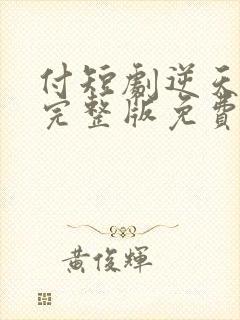 付短劇逆天
完整版免費
黃俊輝